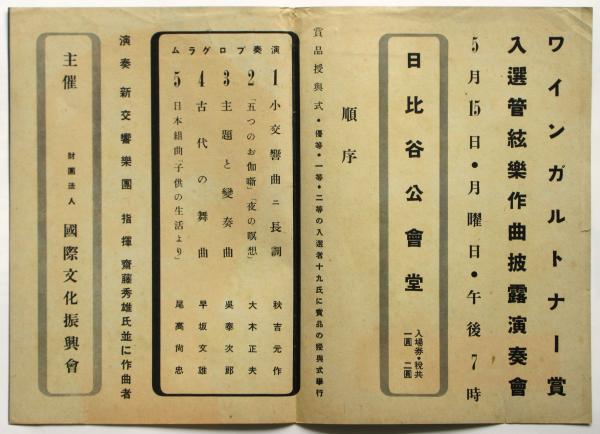 ワインガルトナー賞
入選管絃樂作曲披露演奏會
5月15日・月曜日・午後7時
日比谷公會堂
入場券・税共
一圓 二圓
順序
賞品授與式・優等・一等・二等の入選者十九氏に賞品の授與式擧行
演奏プログラム
1 小交響曲ニ長調 秋吉元作
2 「五つのお伽噺」「夜の瞑想」 大木正夫
3 主題と變奏曲 吳泰次郎
4 古代の舞曲 早坂文雄
5 日本組曲「子供の生活より」 尾高尚忠
演奏 新交響樂團 指揮 齋藤秀雄氏並に作曲者
主催 財團法人 國際文化振興會